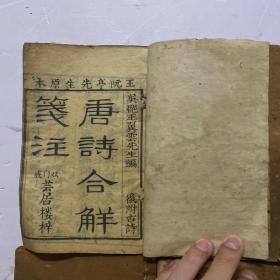 王阮亭先生原本
吳郡王翼雲先生編
復附古詩
唐詩合解
箋注
芸居楼梓